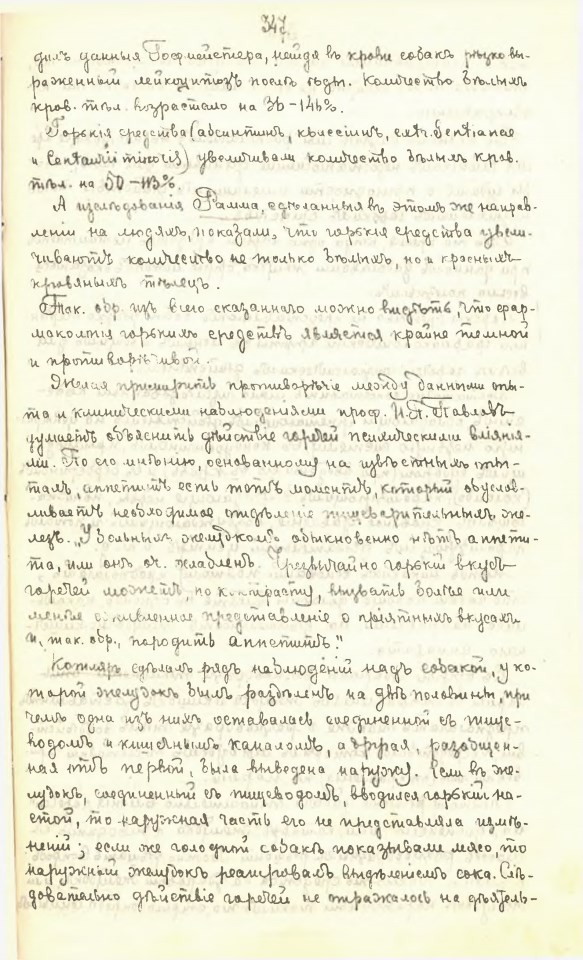 347
дилъ данныя Гофмейстера, найдя въ крови собакъ рѣзко вы-
раженный лейкоцитозъ послѣ ѣды. Количество бѣлыхъ
кров. тѣл. возрастало на 36-146%.
Горькія средства (абсинтинъ, квассіинъ, extr. Gentianae
и Centaurii minoris) увеличивали количество бѣлыхъ кров.
тѣл. на 50-113%.
А изслѣдованія Рамма, сдѣланныя въ этомъ же направ-
леніи на людяхъ, показали, что горькія средства увели-
чиваютъ количество не только бѣлыхъ, но и красныхъ
кровяныхъ тѣлецъ.
Так. обр. изъ всего сказаннаго можно видѣть, что фар-
макологія горькихъ средствъ является крайне темной
и противорѣчивой.
Желая примирить противорѣчіе между данными опы-
та и клиническими наблюденіями проф. И. П. Павловъ
думаетъ объяснить дѣйствіе горечей психическими вліянія-
ми. По его мнѣнію, основанному на извѣстныхъ опы-
тахъ, аппетитъ есть тотъ моментъ, который обуслов-
ливаетъ необходимое отдѣленіе пищеварительныхъ же-
лезъ. „У больныхъ желудкомъ обыкновенно нѣтъ аппети-
та, или онъ оч. слабъ. Чрезвычайно горькій вкусъ
горечей можетъ, по контрасту, вызвать болѣе или
менѣе оживленное представленіе о пріятныхъ вкусахъ
и, так. обр., породить аппетитъ."
Котляръ сдѣлалъ рядъ наблюденій надъ собакой, у ко-
торой желудокъ былъ раздѣленъ на двѣ половины, при
чемъ одна изъ нихъ оставалась соединенной съ пище-
водомъ и кишечнымъ каналомъ, а другая, разобщен-
ная отъ первой, была выведена наружу. Если въ же-
лудокъ, соединенный съ пищеводомъ, вводился горькій на-
стой, то наружная часть его не представляла измѣ-
неній; если же голодной собакѣ показывали мясо, то
наружный желудокъ реагировалъ выдѣленіемъ сока. Слѣ-
довательно дѣйствіе горечей не отражалось на дѣятель-